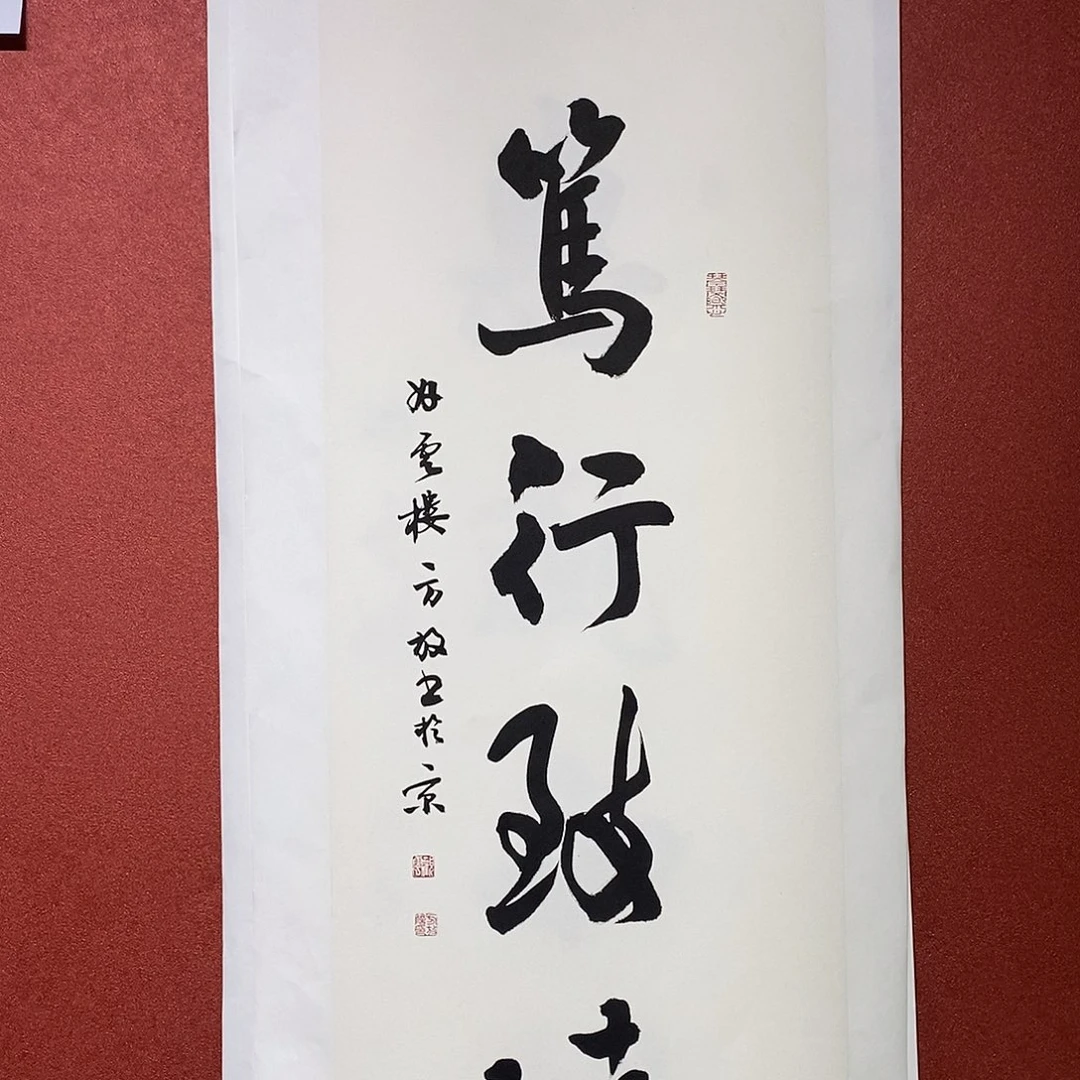 篤行致
好雲樓方放書於京